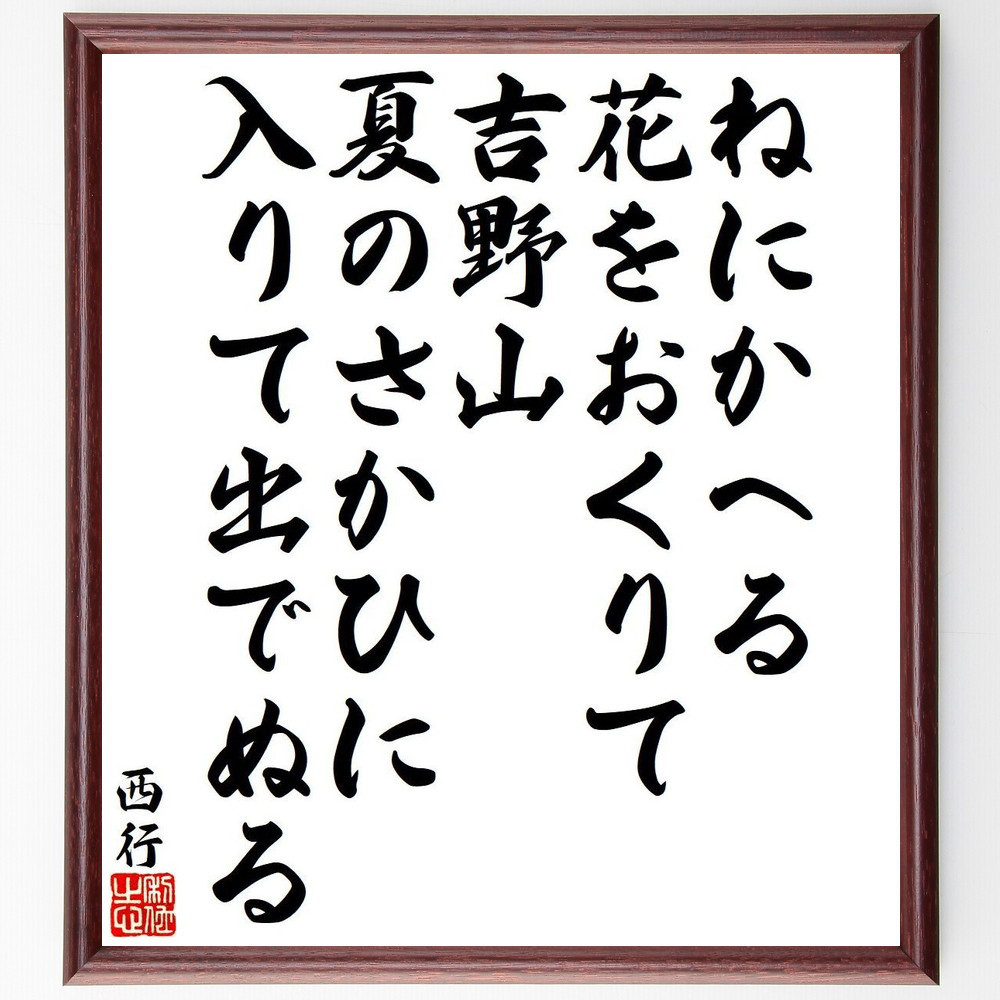 ねにかへる
花をおくりて
吉野山
夏のさかひに
入りて出でぬる
西行